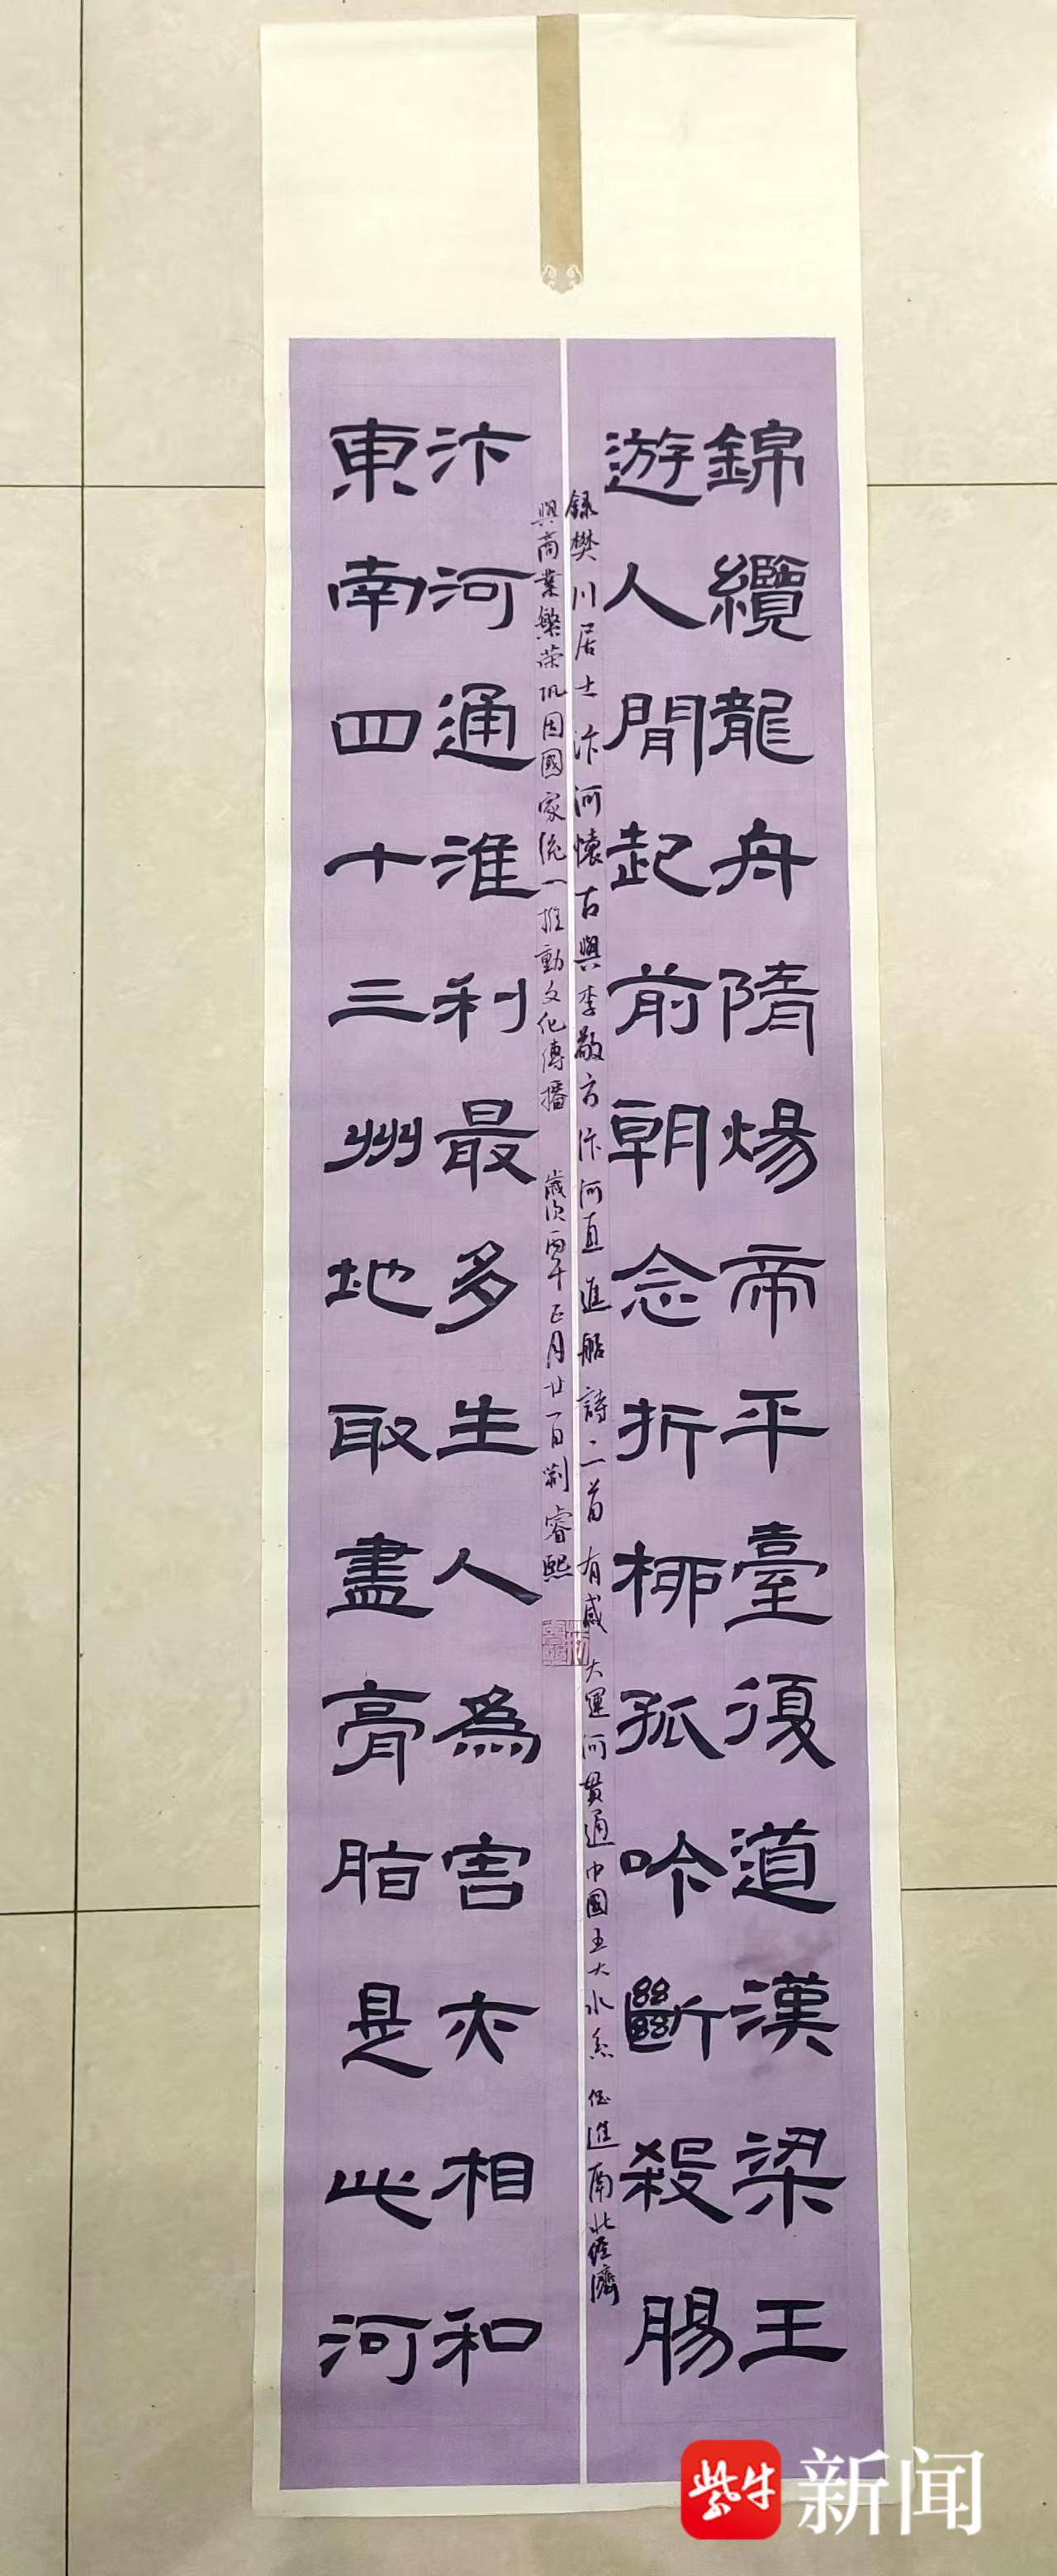 錦纜龍舟隋煬帝平臺復道漢梁王
遊人閒起前朝念折柳孤吟斷殺腸
錄樊川居士汴河懷古與李敬方汴河直進船詩二首有感 大運河貫通中國五大水系 促進南北經濟
與商業繁荣巩固國家統一推動文化傳播 歲次丙午正月廿一日荊睿熙
汴河通淮利最多生人為害亦相和
東南四十三州地取盡膏脂是此河
紫牛新闻